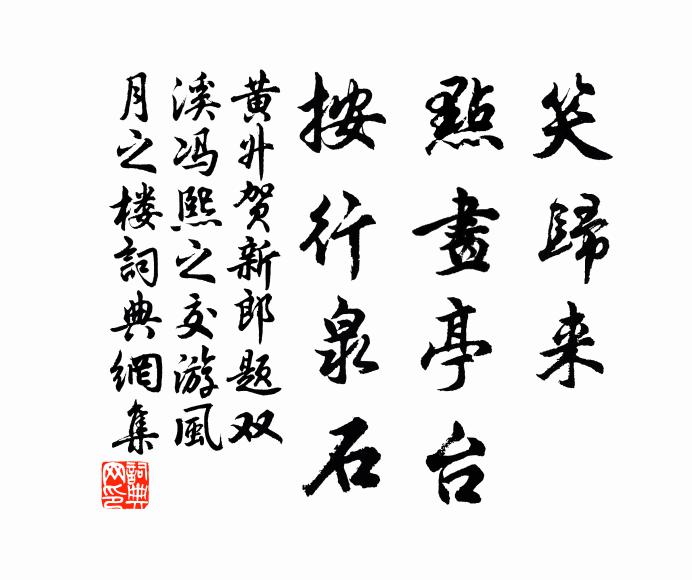 笑歸来
點畫亭台
按行泉石
黄升贺新郎题双
溪冯熙之交游風
月之楼詞典網集
詞典
网印